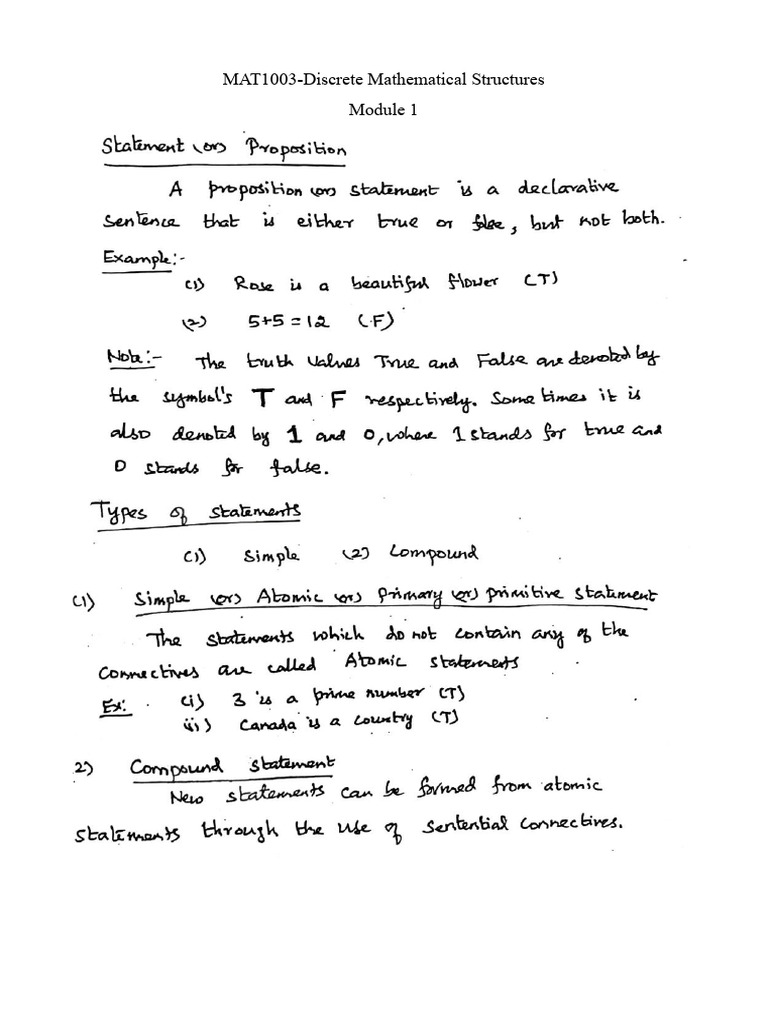 MAT1003-Discrete Mathematical Structures
Module 1
Statement (or) Proposition
A proposition (or) statement is a declarative
sentence that is either true or false, but not both.
Example:-
(1) Rose is a beautiful flower (T)
(2) 5+5=12 (F)
Note:- The truth values True and False are denoted by
the symbol's T and F respectively. Some times it is
also denoted by 1 and 0, where 1 stands for true and
0 stands for false.
Types of statements
(1) Simple (2) Compound
(1) Simple (or) Atomic (or) Primary (or) primitive statement
The statements which do not contain any of the
connectives are called Atomic statements
Ex: (i) 3 is a prime number (T)
(ii) Canada is a country (T)
2) Compound statement
New statements can be formed from atomic
statements through the use of sentential connectives.